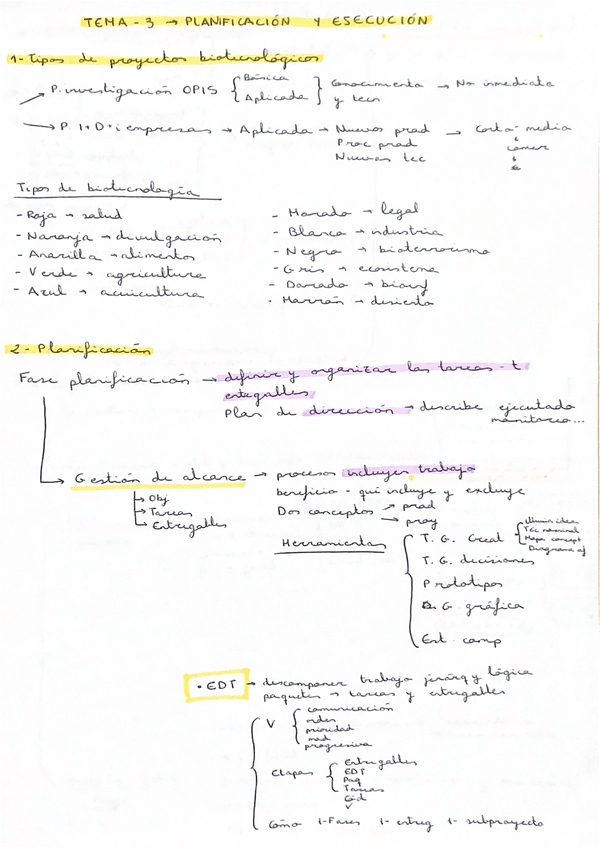 TEMA - 3 → PLANIFICACIÓN Y EJECUCIÓN
1- Tipos de proyectos biotecnológicos
P. investigación OPIS { Básica Aplicada } Conocimiento y tecn → No inmediato
→ P. I+D+i empresas → Aplicada → Nuevos prod → Corto-media
Proc prod
Nuevas tec
Tipos de biotecnología
- Roja → salud
- Naranja → divulgación
- Amarilla → alimentos
- Verde → agricultura
- Azul → acuicultura
- Morado → legal
- Blanca → industria
- Negra → bioterrorismo
- Gris → ecosistema
- Dorado → bioinf
- Marrón → desierto
2- Planificación
Fase planificación → definir y organizar las tareas - t
entregables
Plan de dirección → describe ejecutado
monitoreo...
→ Gestión de alcance → procesos incluyen trabajo
↳ Obj
↳ Tareas
↳ Entregables
beneficio - qué incluye y excluye
Dos conceptos → prod
→ proy
Herramientas
T. G. Creat
Tec nominal
Mapa concept
Diagrama af
T. G. decisiones
Prototipos
G. gráfica
Est. comp
• EDT → descomponer trabajo jerárq y lógica
paquetes → tareas y entregables
V
comunicación
orden
prioridad
progresiva
Etapas
Entregables
EDT
Paq
Tareas
Cód
V
Cómo 1-Fases 1- entreg 1- subproyecto